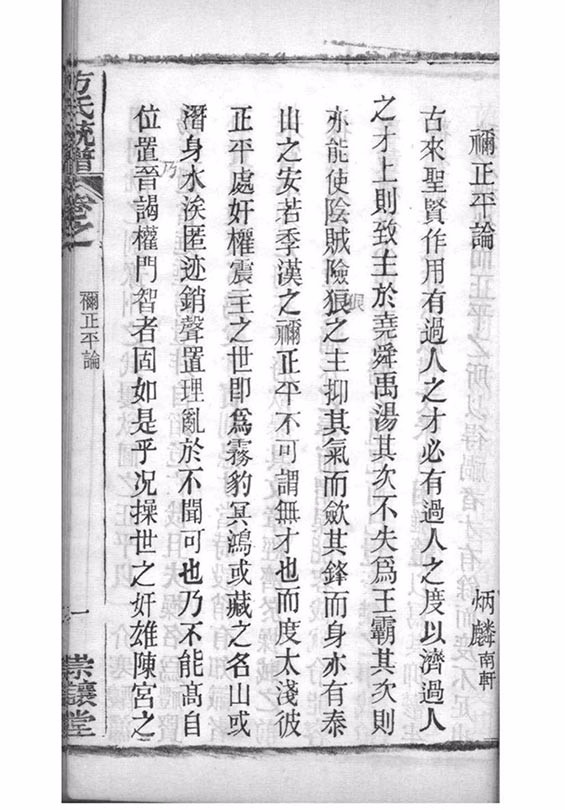 禰正平論
炳麟南軒
古來聖賢作用有過人之才必有過人之度以濟過人
之才上則致主於堯舜禹湯其次不失爲王霸其次則
亦能使陰賊險狼之主抑其氣而歛其鋒而身亦有泰
山之安若季漢之禰正平不可謂無才也而度太淺彼
正平處奸權震主之世即爲霧豹冥鴻或藏之名山或
潛身水涘匿迹銷聲置理亂於不聞可也乃不能高自
位置晉謁權門智者固如是乎况操世之奸雄陳宮之
方氏統譜
卷之
禰正平論
一
崇讓堂